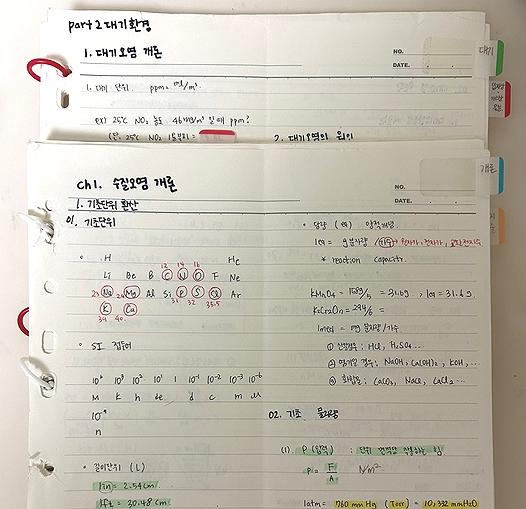 part 2 대기환경
1. 대기오염 개론
NO.
DATE.
대기
1. 대기 단위 ppm = ml/m³
ex) 25℃ NO₂ 농도 46mg/m³ 일 때 ppm?
(단, 25℃ NO₂
2. 대기오염의 원인
Ch1. 수질오염 개론
NO.
DATE.
개론
1. 기초단위 환산
01. 기초단위
H He
12 14 16
Li Be B C N O F Ne
23 Na 24 Mg Al Si P S Cl Ar
31 32 35.5
K Ca
39 40
SI 접두어
10⁶ 10³ 10² 10¹ 1 10⁻¹ 10⁻² 10⁻³ 10⁻⁶
M K h de d c m
10⁻⁹
n
길이단위 (L)
1in = 2.54cm
1ft = 30.48 cm
당량 (eq)
1eq =
* reaction capacity
KMnO₄ = 158g/5 = 31.6g, 1eq = 31.6g
K₂Cr₂O₇ = 294/6 =
1meq = mg 분자량/가수
HCl, H₂SO₄ ...
NaOH, Ca(OH)₂, KOH, ...
CaCO₃, NaCl, CaCl₂ ...
02. 기초 물리량
(1) P (압력) : 단위 면적당 작용하는 힘
P = F/A N/m²
1atm = 760 mmHg (Torr) = 10,332 mmH₂O